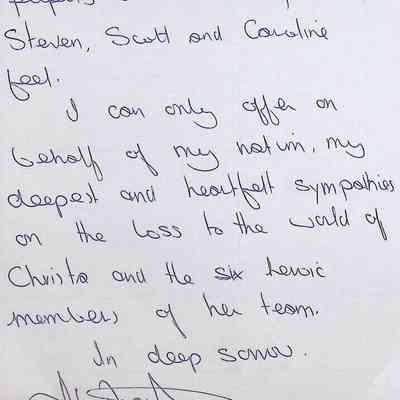 Steven, Scott and Caroline
feel.
I can only offer on
behalf of my nation, my
deepest and heartfelt sympathies
on the loss to the world of
Christa and the six heroic
members of her team.
In deep sorrow.